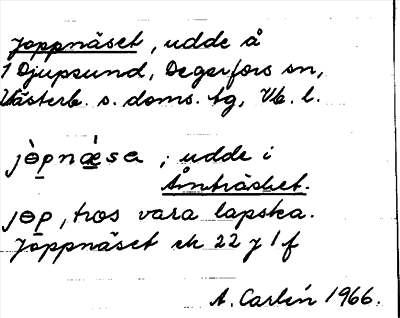 Joppnäset, udde å
1 Djupsund, Degerfors sn,
Västerb. s. doms. tg, Vb. l.
jɵ̀pnæ̀sa, udde i
Åmträsket.
jɵp, tros vara lapska.
Joppnäset ek 22 j 1 f
A. Carlén 1966.